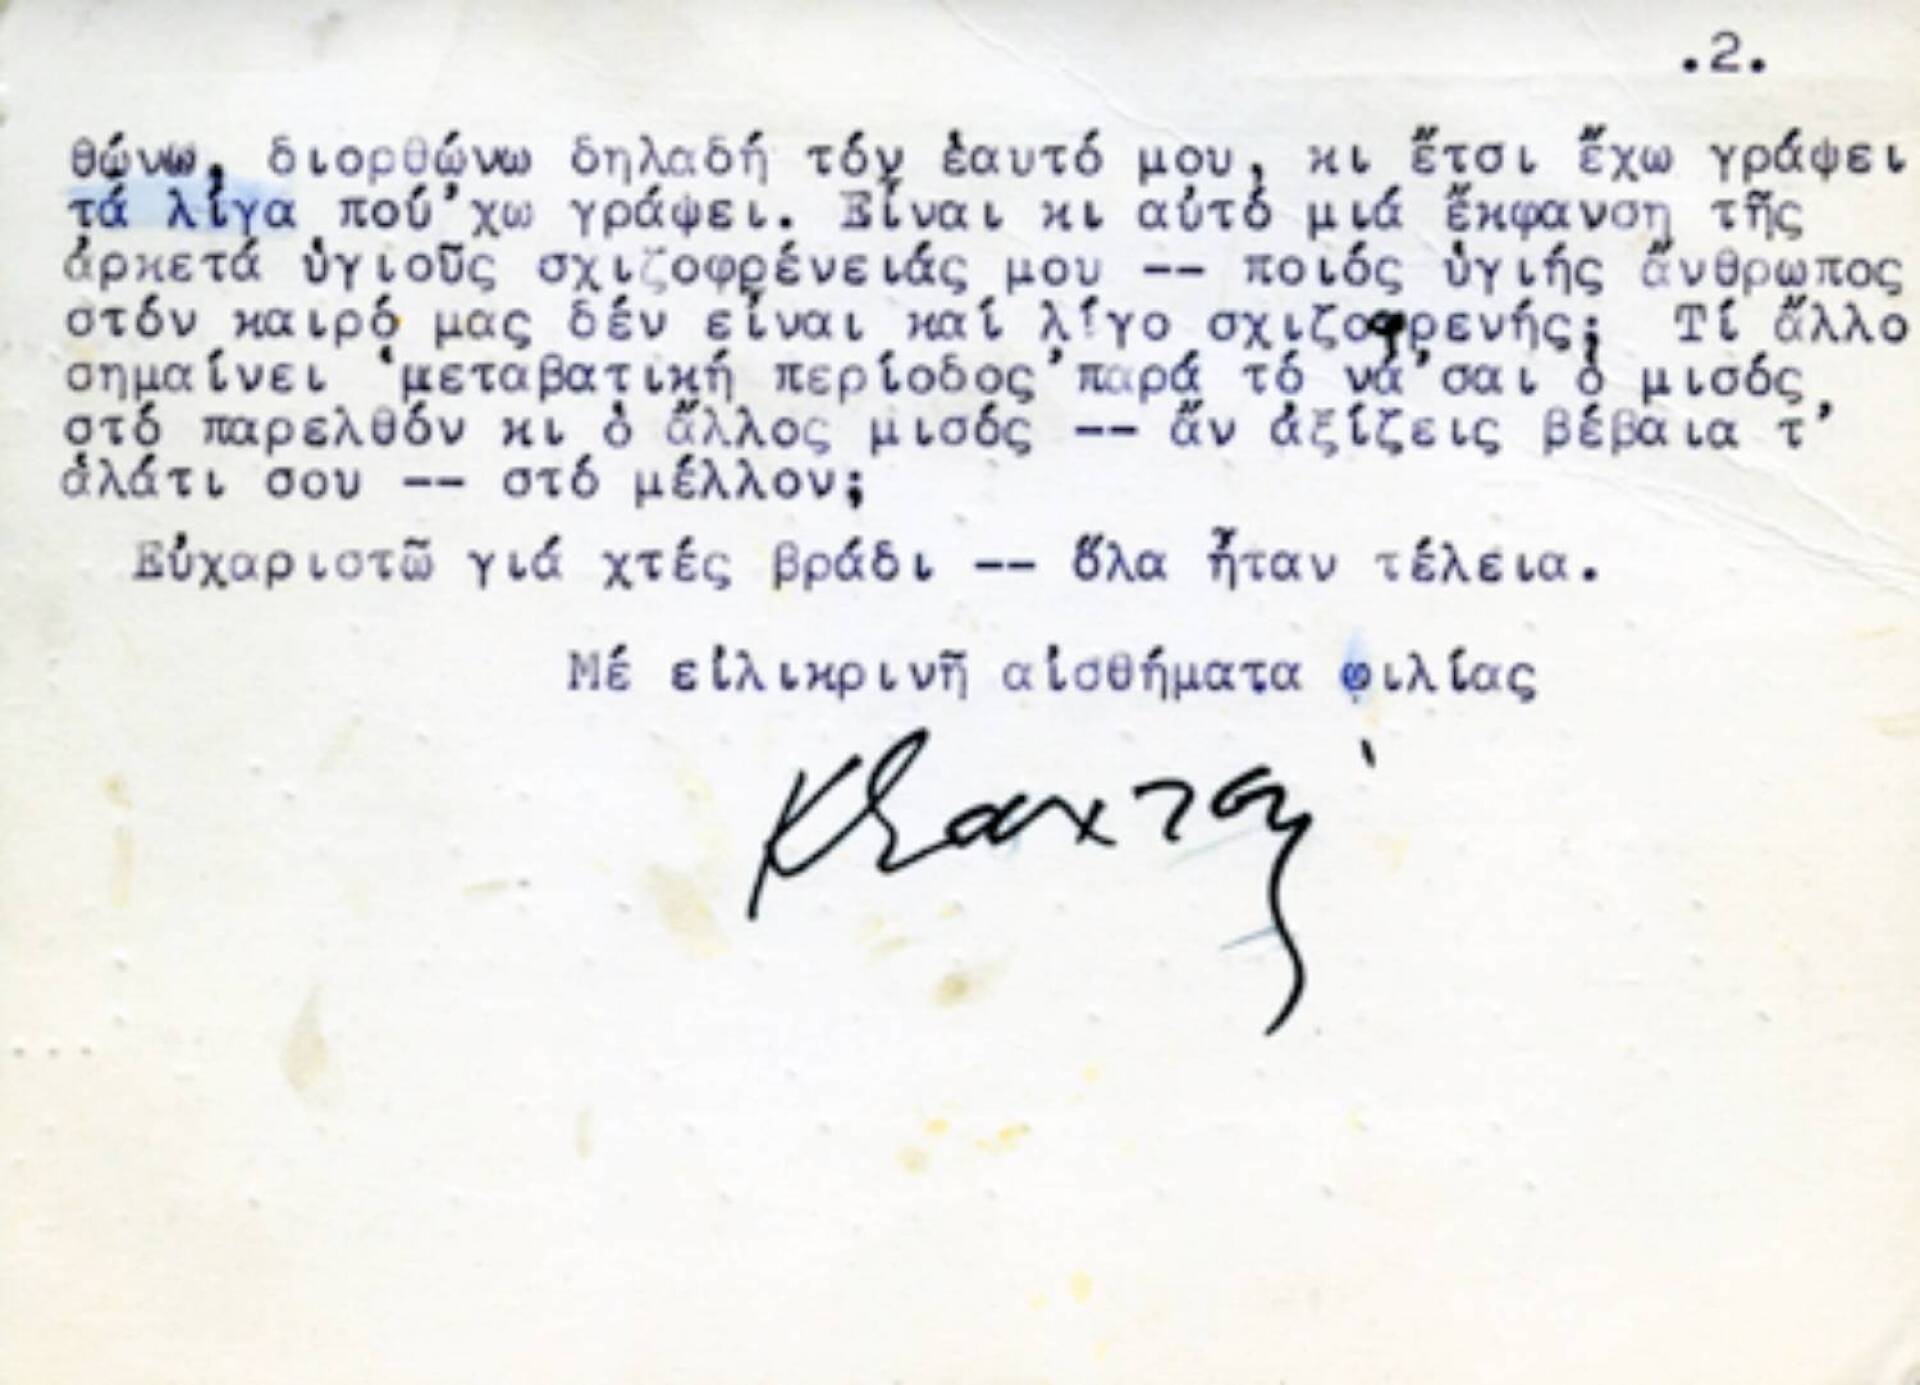 .2.
θώνω, διορθώνω δηλαδή τόν ἑαυτό μου, κι ἔτσι ἔχω γράψει
τά λίγα πού'χω γράψει. Εἶναι κι αὐτό μιά ἔκφανση τῆς
ἀρκετά ὑγιοῦς σχιζοφρένειάς μου -- ποιός ὑγιής ἄνθρωπος
στόν καιρό μας δέν εἶναι καί λίγο σχιζοφρενής; Τί ἄλλο
σημαίνει 'μεταβατική περίοδος' παρά τό νά'σαι ὁ μισός
στό παρελθόν κι ὁ ἄλλος μισός -- ἄν ἀξίζεις βέβαια τ'
ἀλάτι σου -- στό μέλλον;
Εὐχαριστῶ γιά χτές βράδι -- ὅλα ἦταν τέλεια.
Μέ εἰλικρινῆ αἰσθήματα φιλίας